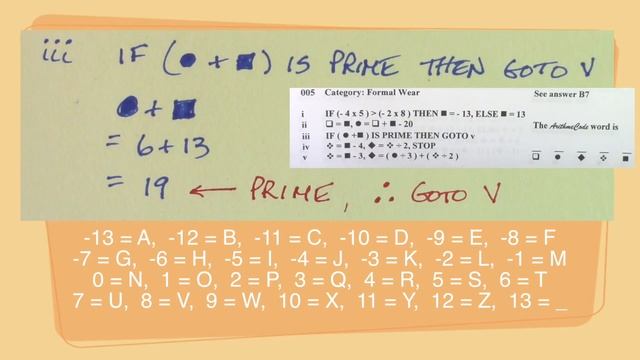 iii IF (● + ■) IS PRIME THEN GOTO V
● + ■
= 6 + 13
= 19 ← PRIME, ∴ GOTO V
005 Category: Formal Wear See answer B7
i IF (- 4 x 5 ) > (- 2 x 8 ) THEN ■ = - 13, ELSE ■ = 13
ii ❏ = ■, ● = ❏ + ■ - 20
iii IF ( ● +■ ) IS PRIME THEN GOTO v
iv ❖ = ■ - 4, ◆ = ❖ ÷ 2, STOP
v ❖ = ■ - 3, ◆ = ( ● ÷ 3 ) + ( ❖ ÷ 2 )
The ArithmeCode word is
❏ ● ◆ ❖ ■
-13 = A, -12 = B, -11 = C, -10 = D, -9 = E, -8 = F
-7 = G, -6 = H, -5 = I, -4 = J, -3 = K, -2 = L, -1 = M
0 = N, 1 = O, 2 = P, 3 = Q, 4 = R, 5 = S, 6 = T
7 = U, 8 = V, 9 = W, 10 = X, 11 = Y, 12 = Z, 13 = _